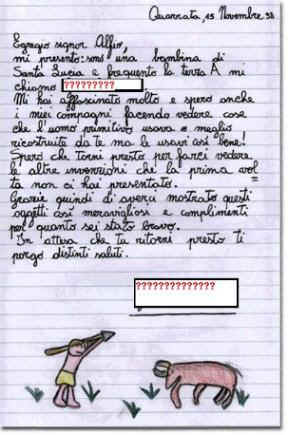 Quarrata, 25 Novembre 98
Egregio signor Alfio,
mi presento: sono una bambina di
Santa Lucia e frequento la terza A mi
chiamo ?????????
Mi hai affascinato molto e spero anche
i miei compagni facendo vedere cose
che l'uomo primitivo usava o meglio
ricostruite da te ma le usavi così bene!
Spero che torni presto per farci vedere
le altre invenzioni che la prima vol
ta non ci hai presentato.
Grazie quindi di averci mostrato questi
oggetti così meravigliosi e complimenti
per quanto sei stato bravo.
In attesa che tu ritorni presto ti
porgo distinti saluti.
??????????????